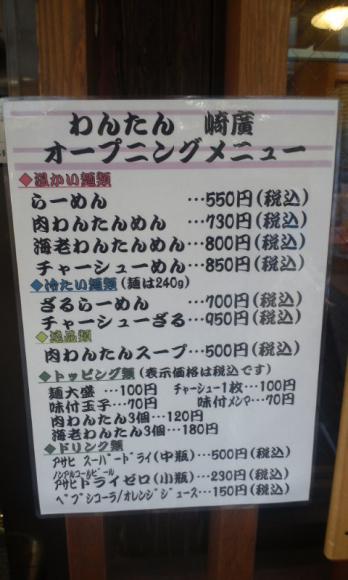 わんたん 崎廣
オープニングメニュー
◆温かい麺類
らーめん …550円(税込)
肉わんたんめん …730円(税込)
海老わんたんめん…800円(税込)
チャーシューめん…850円(税込)
◆冷たい麺類(麺は240g)
ざるらーめん …700円(税込)
チャーシューざる…950円(税込)
◆逸品類
肉わんたんスープ…500円(税込)
◆トッピング類(表示価格は税込です)
麺大盛 …100円 チャーシュー1枚…100円
味付玉子…70円 味付メンマ…70円
肉わんたん3個…120円
海老わんたん3個…180円
◆ドリンク類
アサヒ スーパードライ(中瓶)…500円(税込)
ノンアルコールビール
アサヒドライゼロ(小瓶)…230円(税込)
ペプシコーラ/オレンジジュース…150円(税込)